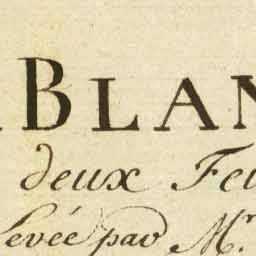 BLAN
deux Feu
levée par Mr.